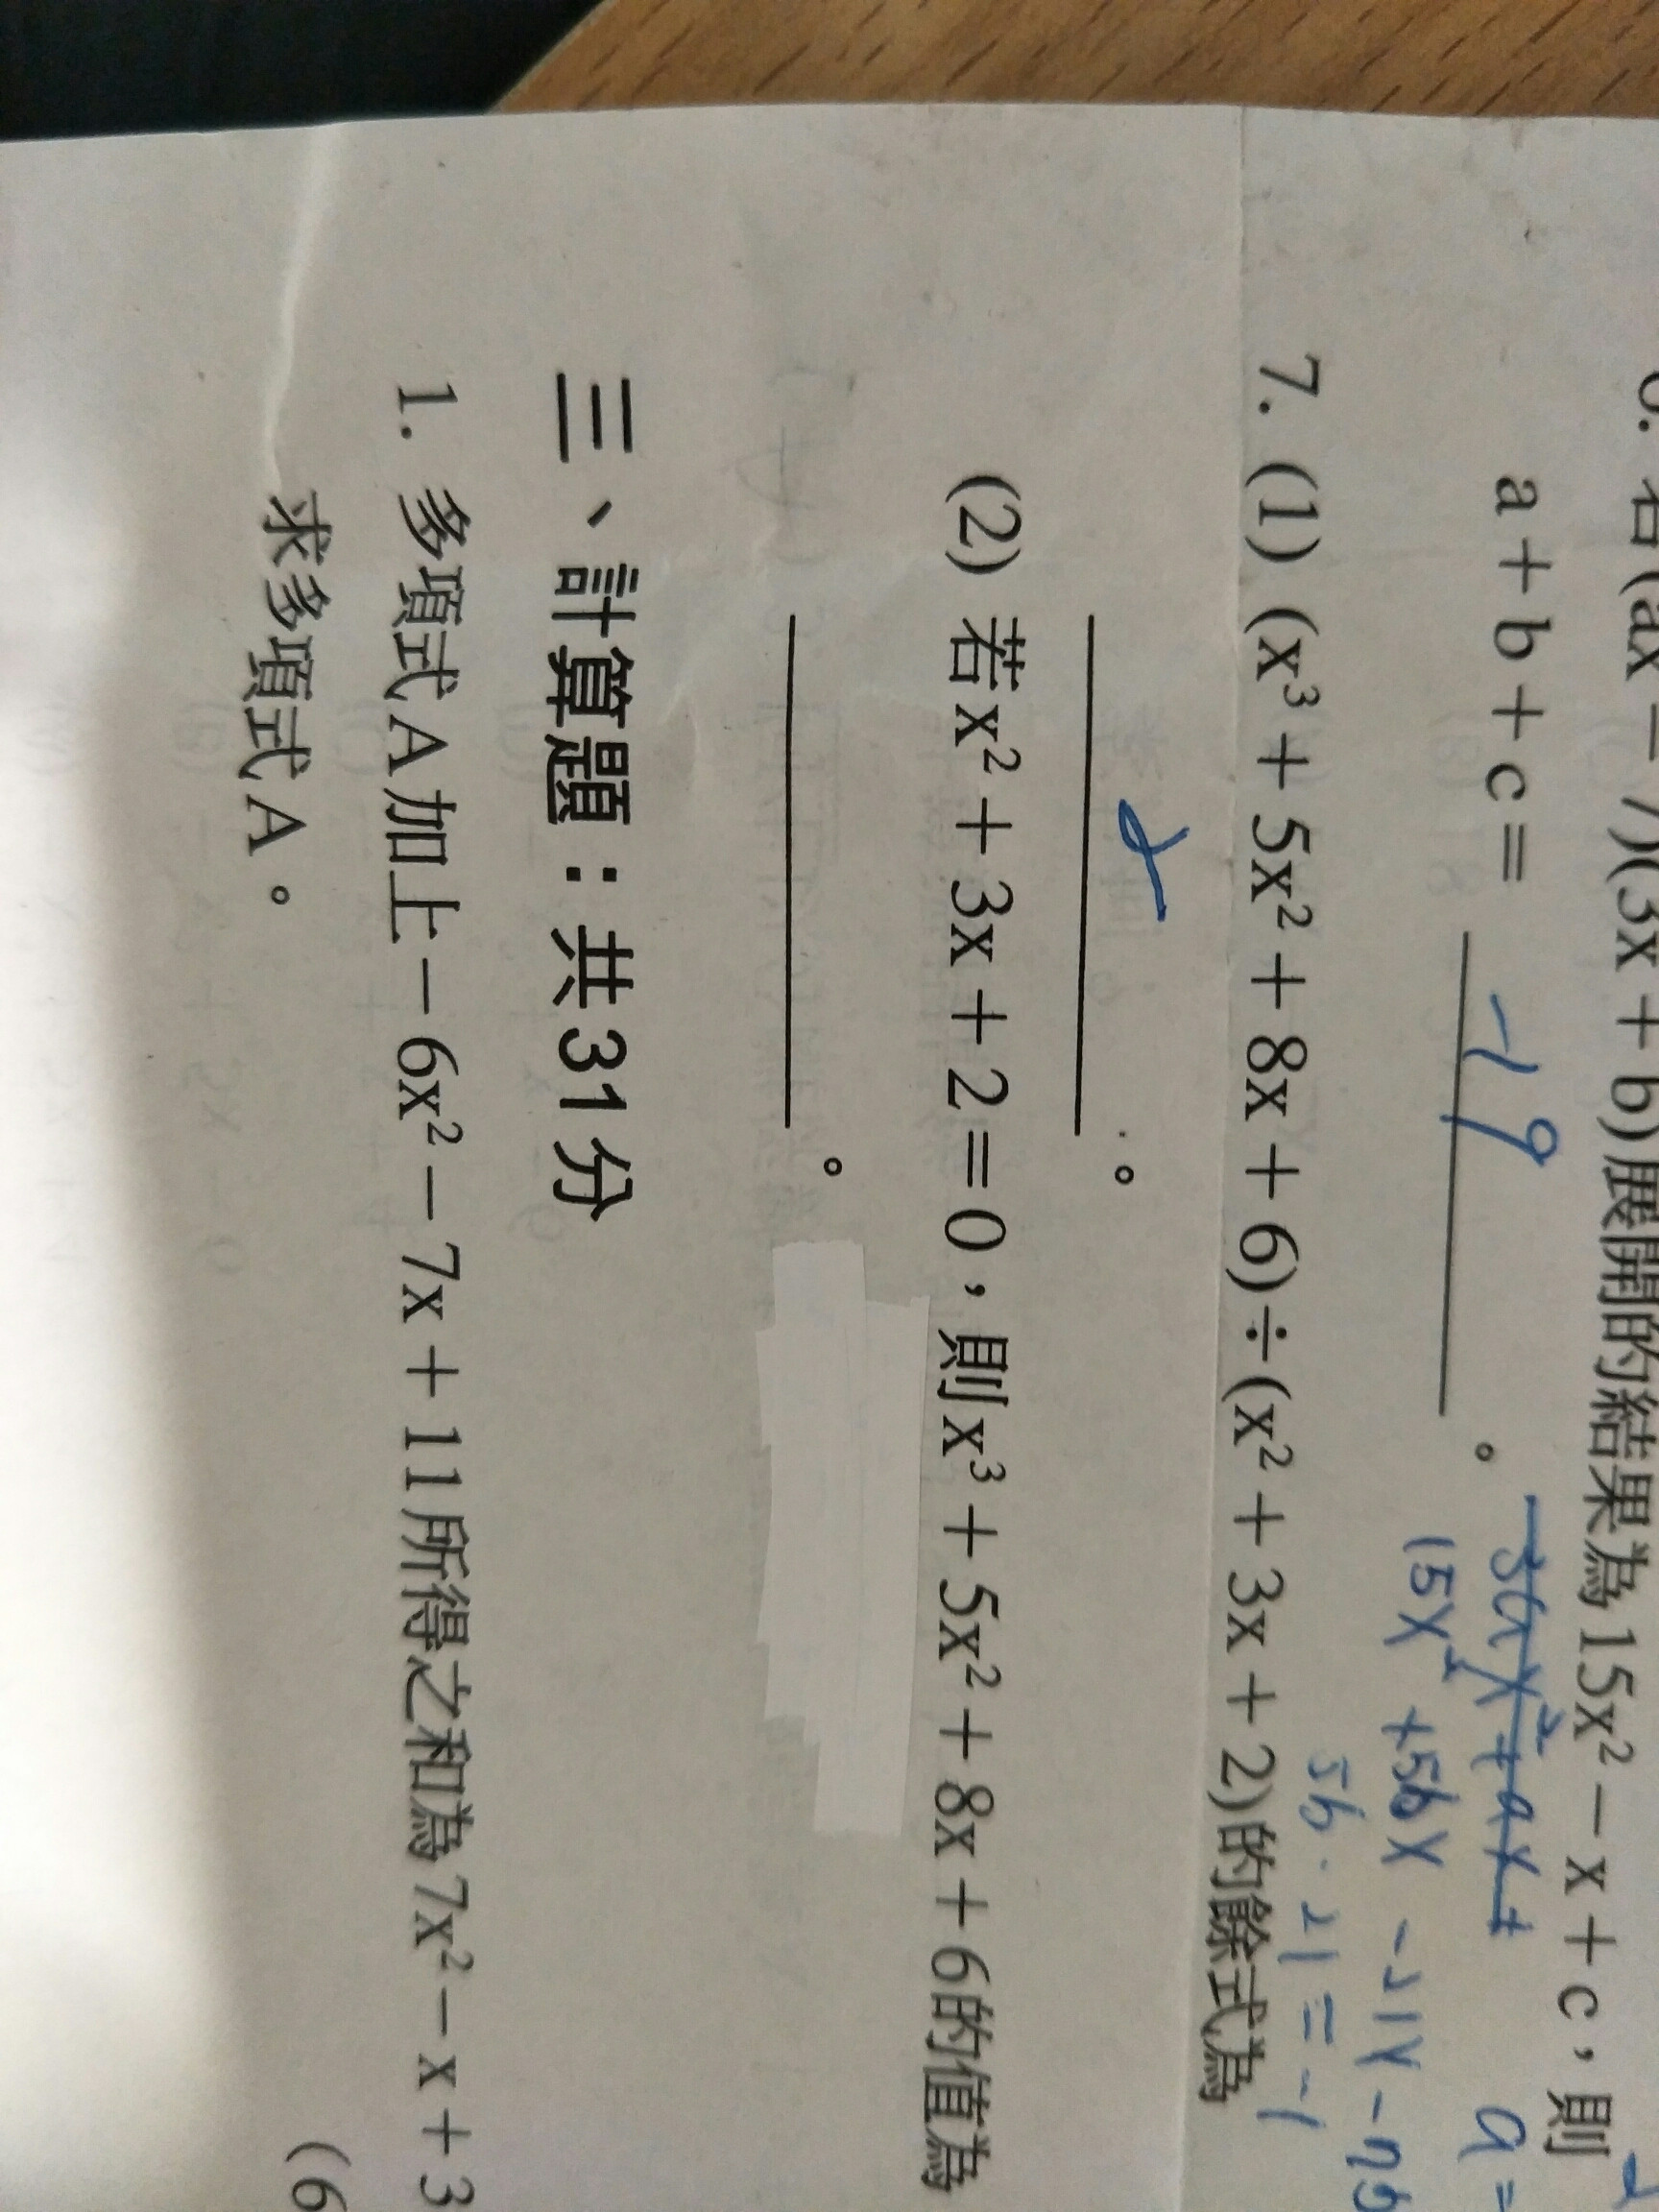 若(ax－7)(3x＋b)展開的結果為15x²－x＋c，則
a＋b＋c＝ -19 。
15x² +5bx -21x -7b
5b - 21 = -1
a =
7. (1) (x³＋5x²＋8x＋6)÷(x²＋3x＋2)的餘式為
2 。
(2) 若x²＋3x＋2＝0，則x³＋5x²＋8x＋6的值為
。
三、計算題：共31分
1. 多項式A加上－6x²－7x＋11所得之和為7x²－x＋3
求多項式A。
(6